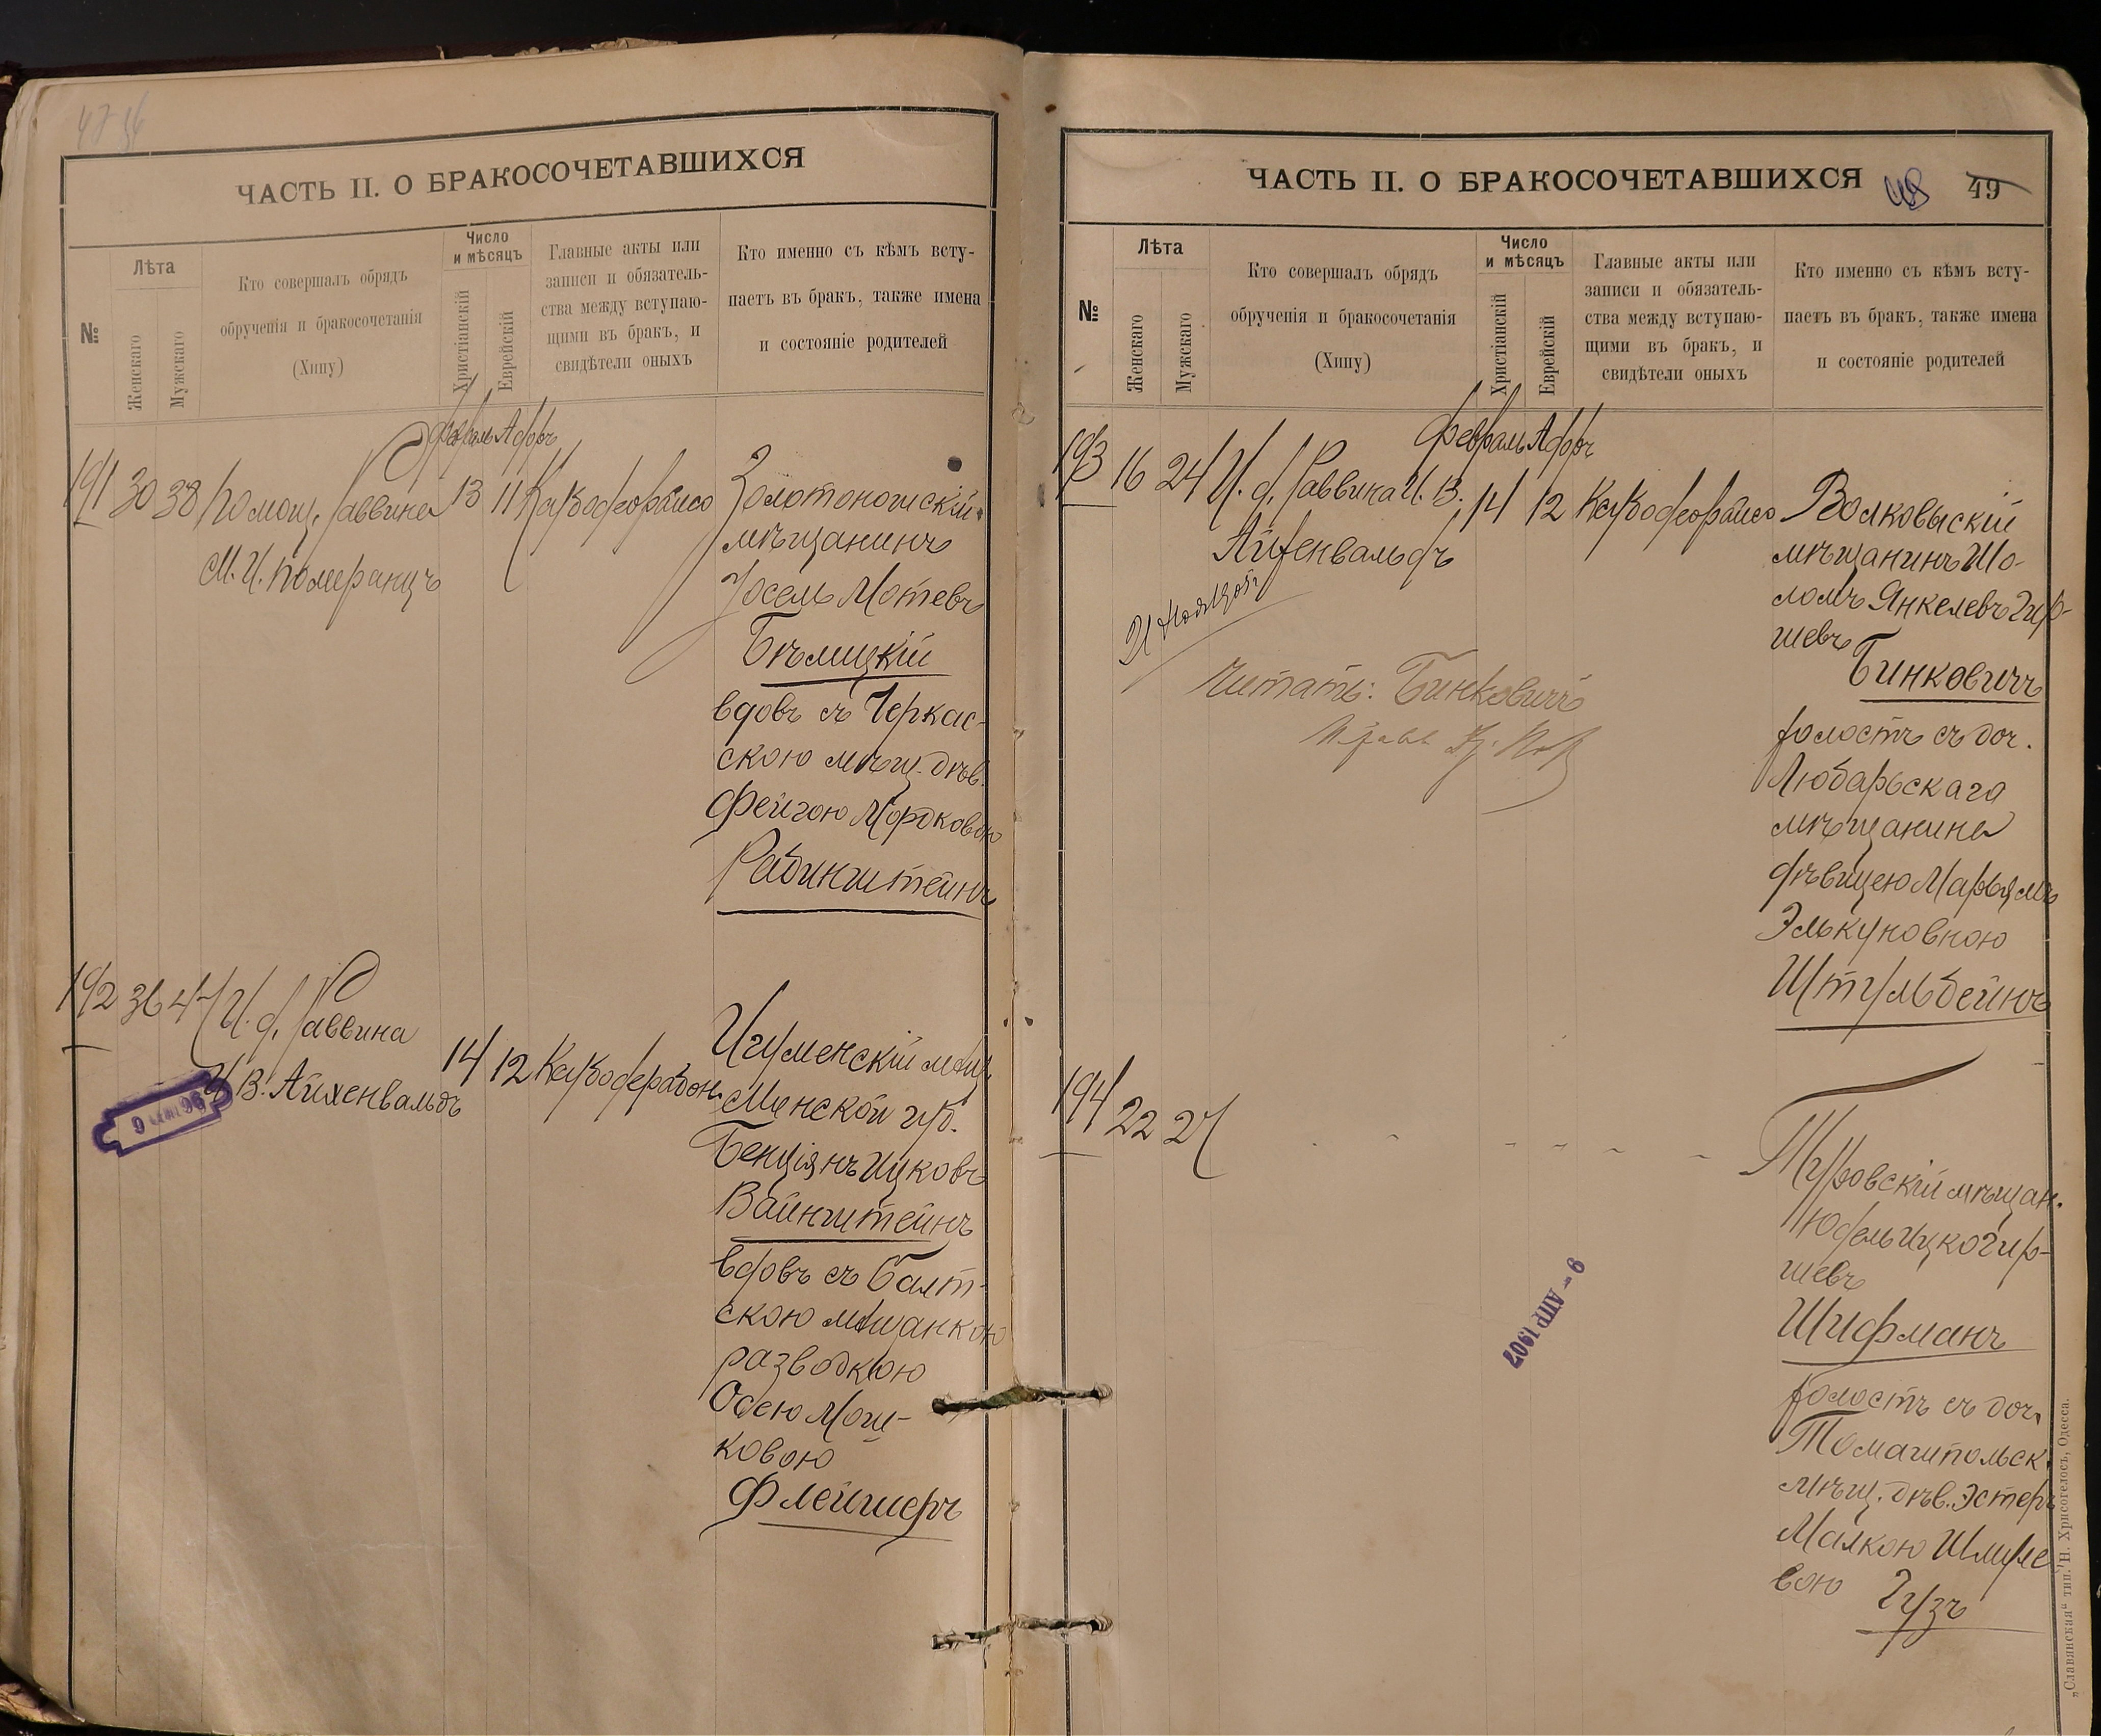 ЧАСТЬ II. О БРАКОСОЧЕТАВШИХСЯ
№
Лѣта
Женскаго
Мужскаго
Кто совершалъ обрядъ
обрученія и бракосочетанія
(Хипу)
Число
и мѣсяцъ
Христіанскій
Еврейскій
Главные акты или
записи и обязатель-
ства между вступаю-
щими въ бракъ, и
свидѣтели оныхъ
Кто именно съ кѣмъ всту-
паетъ въ бракъ, также имена
и состояніе родителей
Февраль Адоръ
191 30 38 Помощ. Раввина 13 11
М. И. Померанцъ
Золотоношскій
мѣщанинъ
Іосель Мотевъ
Бѣлицкій
вдовъ съ Черкас-
скою мѣщ. дѣв.
Фейгою Мордковою
Рабинштейнъ
192 36 47 И. д. Раввина
И. В. Айхенвальдъ
14 12
Игуменскій мѣщ.
Минской губ.
Бенціянъ Ицковъ
Вайнштейнъ
вдовъ съ Балт-
скою мѣщанкою
разводкою
Осею Мош-
ковою
Флейшеръ
ЧАСТЬ II. О БРАКОСОЧЕТАВШИХСЯ
48 49
№
Лѣта
Женскаго
Мужскаго
Кто совершалъ обрядъ
обрученія и бракосочетанія
(Хипу)
Число
и мѣсяцъ
Христіанскій
Еврейскій
Главные акты или
записи и обязатель-
ства между вступаю-
щими въ бракъ, и
свидѣтели оныхъ
Кто именно съ кѣмъ всту-
паетъ въ бракъ, также имена
и состояніе родителей
Февраль Адоръ
193 16 24 И. д. Раввина И. В. 14 12
Айхенвальдъ
Волковыскій
мѣщанинъ Шо-
ломъ Янкелевъ Гир-
шевъ
Бинковичъ
холостъ съ доч.
Любарьскаго
мѣщанина
дѣвицею Марьямъ
Элькуновною
Штульбейнъ
читать: Бинковичъ
194 22 27
Туровскій мѣщан.
Юдель Ицко Гир-
шевъ
Шифманъ
холостъ съ доч.
Томашпольск.
мѣщ. дѣв. Эстеръ
Малкою Шмуле
вою Гузъ
9 - АПР 1907
„Славянская“ тип. Н. Хрисогелосъ, Одесса.